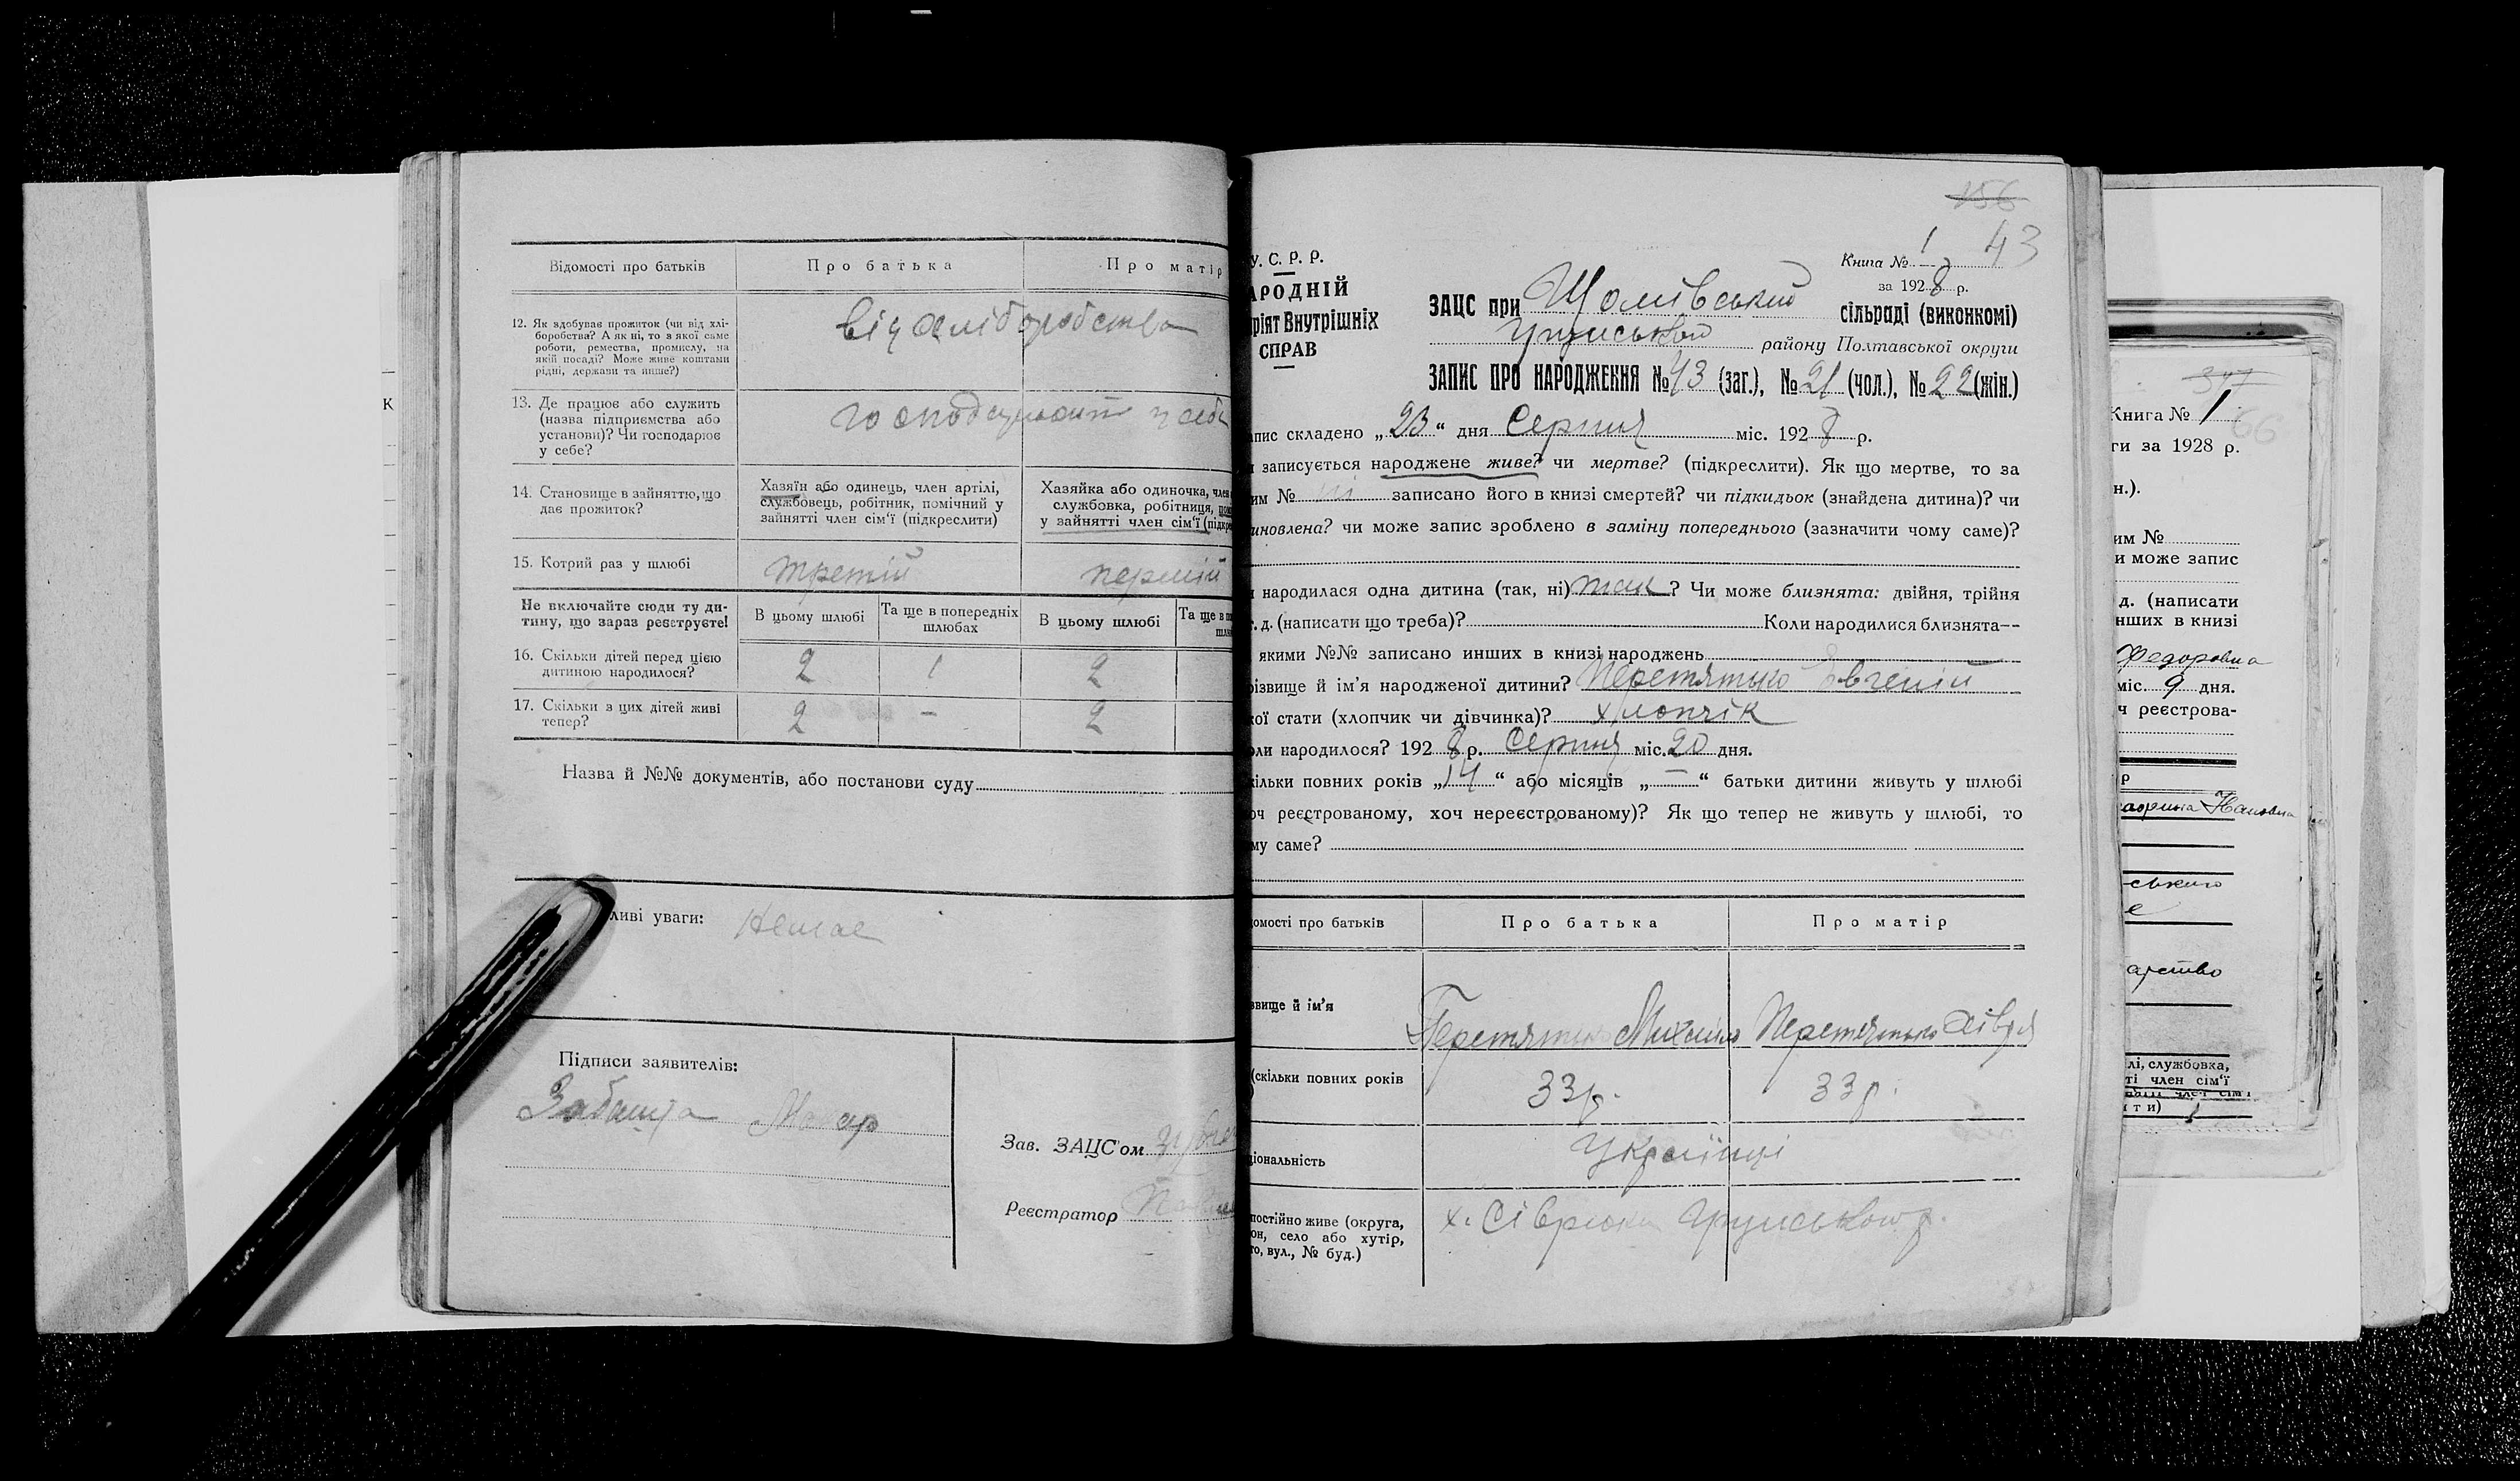 Відомості про батьків
Про батька
Про матір
12. Як здобуває прожиток (чи від хлі-
боробства? А як ні, то з якої саме
роботи, ремества, промислу, на
якій посаді? Може живе коштами
рідні, держави та инше?)
від хліборобства
13. Де працює або служить
(назва підприємства або
установи)? Чи господарює
у себе?
у себе
14. Становище в зайняттю, що
дає прожиток?
Хазяїн або одинець, член артілі,
службовець, робітник, помічний у
зайнятті член сім'ї (підкреслити)
Хазяйка або одиночка, член
службовка, робітниця,
у зайнятті член сім'ї (підкре
15. Котрий раз у шлюбі
третій
перший
Не включайте сюди ту ди-
тину, що зараз реєструєте!
В цьому шлюбі
Та ще в попередніх
шлюбах
В цьому шлюбі
Та ще в
16. Скільки дітей перед цією
дитиною народилося?
2
1
2
17. Скільки з цих дітей живі
тепер?
2
-
2
Назва й №№ документів, або постанови суду
ливі уваги: Немає
Підписи заявителів:
Забашта Макар
Зав. ЗАЦС'ом
Реєстратор
156
43
У. С. Р. Р.
АРОДНІЙ
ріят Внутрішніх
СПРАВ
Книга № 1
за 1928 р.
ЗАЦС при сільраді (виконкомі)
району Полтавської округи
ЗАПИС ПРО НАРОДЖЕННЯ № 43 (заг.), № 21 (чол.), № 22 (жін.)
апис складено „23“ дня Серпня міс. 1928 р.
записується народжене живе? чи мертве? (підкреслити). Як що мертве, то за
им № записано його в книзі смертей? чи підкидьок (знайдена дитина)? чи
иновлена? чи може запис зроблено в заміну попереднього (зазначити чому саме)?
народилася одна дитина (так, ні) так? Чи може близнята: двійня, трійня
т. д. (написати що треба)? Коли народилися близнята—
якими №№ записано инших в книзі народжень
різвище й ім'я народженої дитини? Перетятько Євгеній
кої стати (хлопчик чи дівчинка)? хлопчік
оли народилося? 1928 р. Серпня міс. 20 дня.
кільки повних років „14“ або місяців „—“ батьки дитини живуть у шлюбі
оч реєстрованому, хоч нереєстрованому)? Як що тепер не живуть у шлюбі, то
му саме?
домості про батьків
Про батька
Про матір
звище й ім'я
Перетятько Михайло
Перетятько Хівря
(скільки повних років
33 р.
33 р.
ціональність
Українці
постійно живе (округа,
он, село або хутір,
то, вул., № буд.)
х. Сіврюки
347
Книга № 1
66
ги за 1928 р.
н.).
им №
и може запис
д. (написати
нших в книзі
Федоровна
міс. 9 дня.
ч реєстрова-
Р
ського
лі, службовка,
ті член сім'ї
ити)